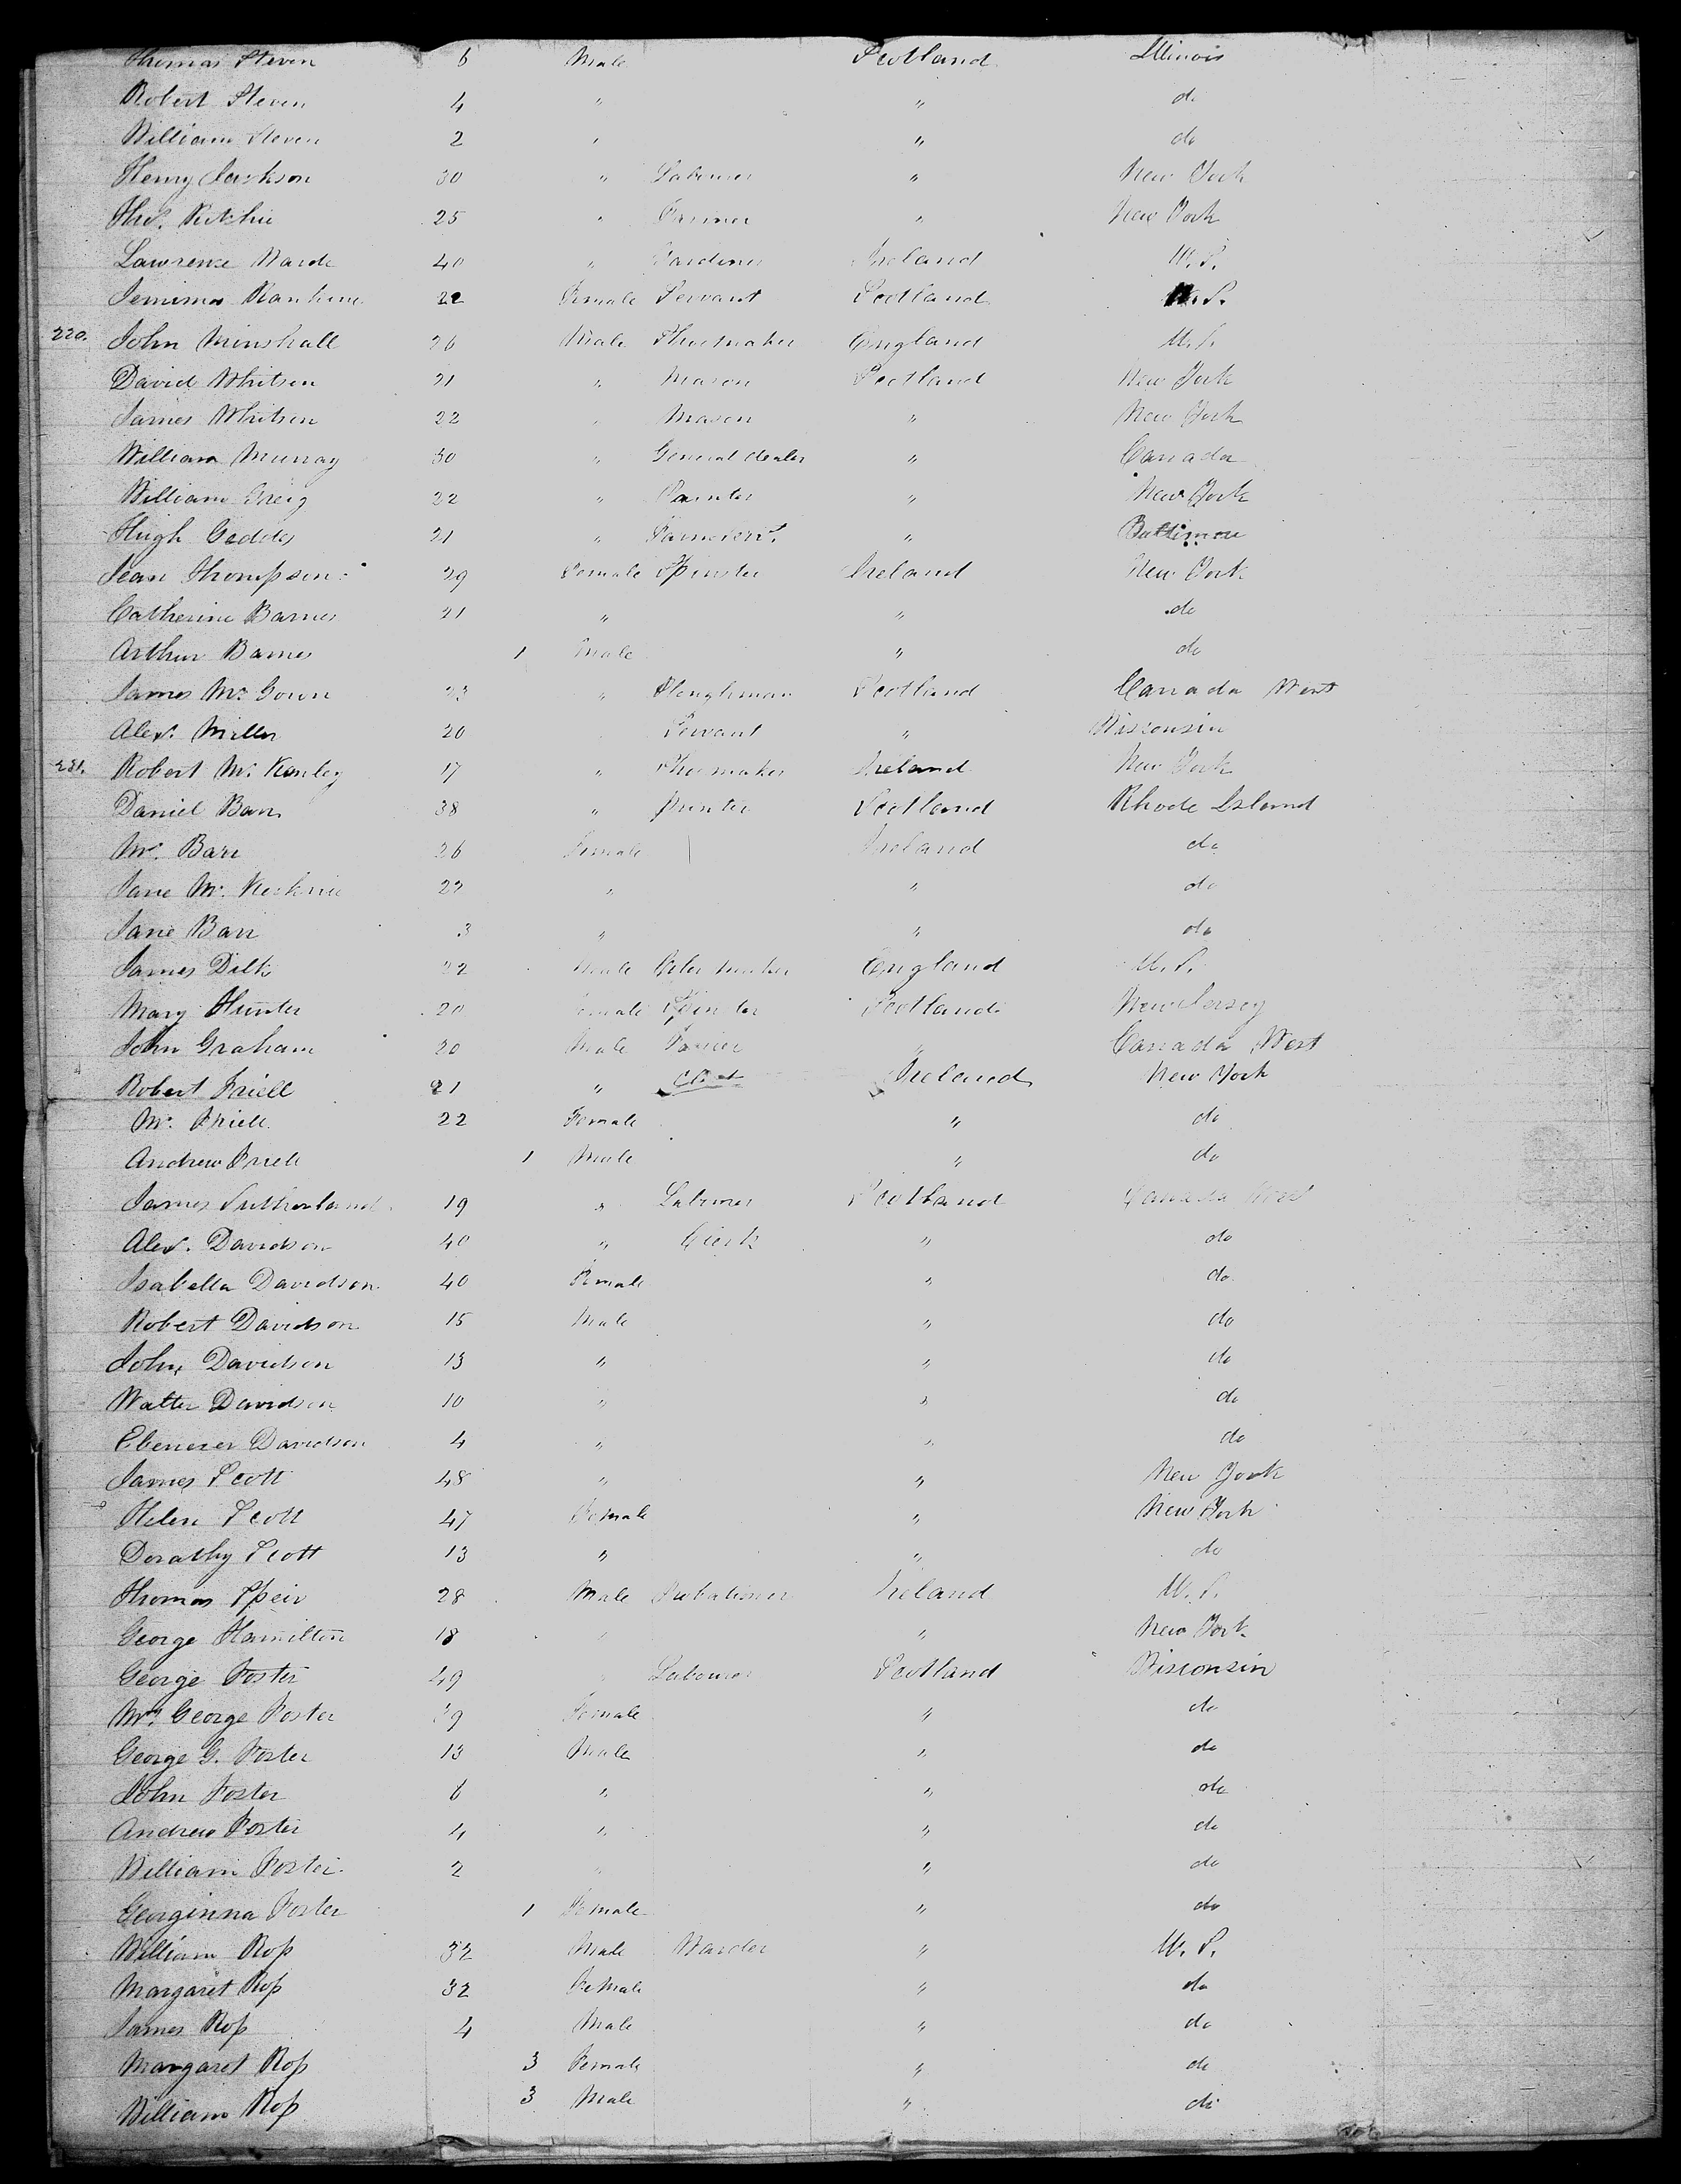 Thomas Steven 6 Male Scotland Illinois
Robert Steven 4 " " do
William Steven 2 " " do
Henry Jackson 30 " Labourer " New York
Thos. Ritchie 25 " Farmer " New York
Lawrence Warde 40 " Gardiner Ireland U.S.
Jemima Rankine 22 Female Servant Scotland U.S.
220. John Minshall 26 Male Shoemaker England U.S.
David Whitson 21 " Mason Scotland New York
James Whitson 22 " Mason " New York
William Murray 30 " General dealer " Canada
William Greig 22 " Painter " New York
Hugh Geddes 21 " " Baltimore
Jean Thompson 29 Female Spinster Ireland New York
Catherine Barnes 21 " " do
Arthur Barnes 1 Male " do
James Mc Gown 23 " Ploughman Scotland Canada West
Alexr. Miller 20 Servant " Wisconsin
221. Robert Mc Kanley 17 " Shoemaker Ireland New York
Daniel Barr 38 " printer Scotland Rhode Island
Mrs. Barr 26 Female Ireland do
Jane Mc 22 " " do
Jane Barr 3 " " do
James Dilk 22 Male England U.S.
Mary Hunter 20 Female Spinster Scotland New Jersey
John Graham 20 Male " Canada West
Robert Friell 21 " Ireland New York
Mrs. Friell 22 Female " do
Andrew Friell 1 Male " do
James Sutherland 19 " Labourer Scotland Canada West
Alexr. Davidson 40 " Clerk " do
Isabella Davidson 40 Female " do
Robert Davidson 15 Male " do
John Davidson 13 " " do
Walter Davidson 10 " " do
Ebenezer Davidson 4 " " do
James Scott 48 " " New York
Helen Scott 47 Female " New York
Dorathy Scott 13 " " do
Thomas Speir 28 Male Probationer Ireland U.S.
George Hamilton 18 " " New York
George Foster 49 " Labourer Scotland Wisconsin
Mrs. George Foster 39 Female " do
George G. Foster 13 Male " do
John Foster 6 " " do
Andrew Foster 4 " " do
William Foster 2 " " do
Georginna Foster 1 Female " do
William Ross 32 Male Warder " U.S.
Margaret Ross 32 Female " do
James Ross 4 Male " do
Margaret Ross 3 Female " do
William Ross 3 Male " do